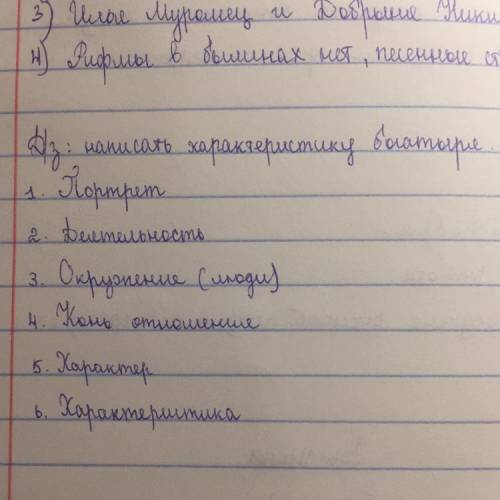 3) Илье Муромец и Добрыне Ники
4) Рифмы в былинах нет, песенные ст
Д/з: написать характеристику богатыре.
1. Портрет
2. Деятельность
3. Окружение (люди)
4. Конь отношение
5. Характер
6. Характеристика